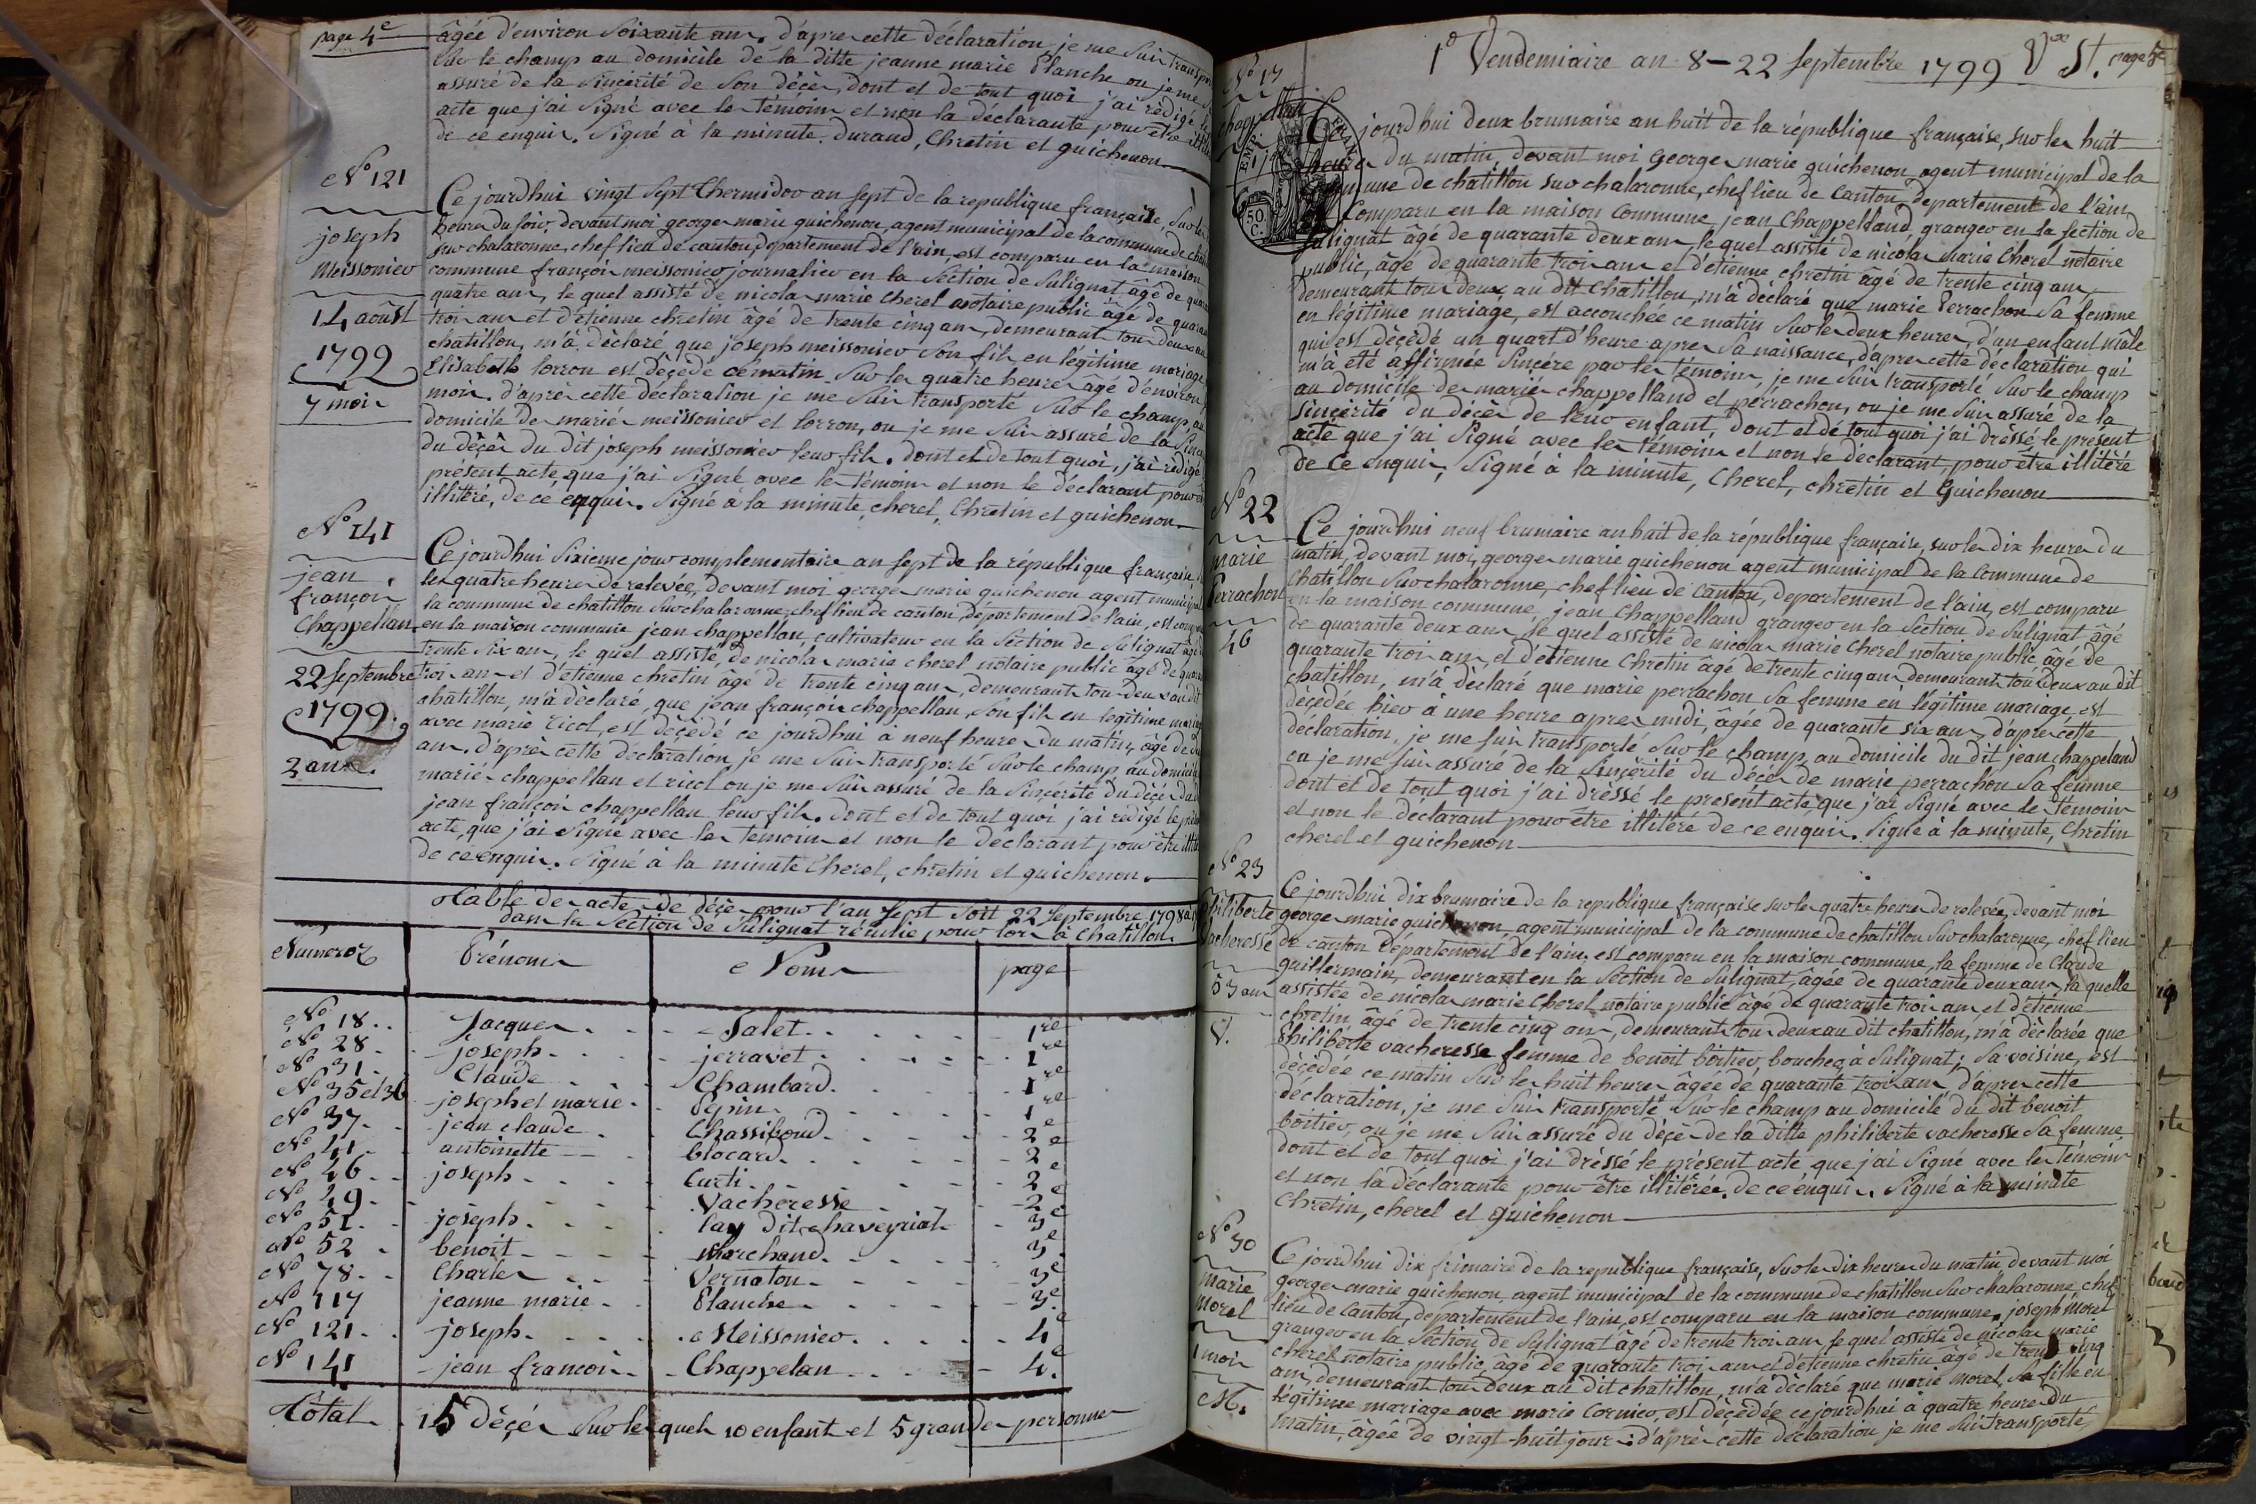 page 4e
âgée d'environ Soixante ans. d'après cette déclaration je me Suis transpor
Sur le champ au domicile de la ditte jeanne marie Planche ou je me
assuré de la Sincérité de Son décès, dont et de tout quoi j'ai rédigé
acte que j'ai Signé avec les témoins et non la déclarante pour être
de ce enquis. Signé à la minute. durand, Chretin et guichenon
No 121
joseph
Meissonier
14 aoûst
1799
7 mois
Ce jourdhui vingt Sept Thermidor an Sept de la republique française, Sur les
heures du Soir, devant moi george marie guichenon, agent municipal de la commune de
Sur chalaronne, chef lieu de canton, departement de l'ain, est comparu en la maison
commune françois meissonier journalier en la Section de Sulignat âgé de
quatre ans, le quel assisté de nicolas marie Cherel notaire public âgé de
trois ans et d'etienne chretin âgé de trente cinq ans, demeurant tous deux
chatillon, m'a déclaré que joseph meissonier Son fils en légitime mariage
Elisabeth lorron est décédé ce matin Sur les quatre heures âgé d'environ
mois. d'après cette déclaration je me Suis transporté Sur le champ, au
domicile des mariés meissonier et lorron, ou je me Suis assuré de la
du décès du dit joseph meissonier leur fils. dont et de tout quoi, j'ai rédigé
présent acte, que j'ai Signé avec les témoins et non le déclarant pour
illitéré, de ce enquis. Signé à la minute, cherel, Chretin et guichenon
No 141
jean
françois
Chappellan
22 Septembre
1799
2 ans.
Ce jourdhui Sixieme jour complementaire an Sept de la république française
les quatre heures de relevée, devant moi george marie guichenon agent municipal
la commune de chatillon Sur chalaronne chef lieu de canton, département de l'ain, est
en la maison commune jean chappellan, cultivateur en la Section de Sulignat âgé
trente Six ans, le quel assisté, de nicolas marie cherel notaire public âgé de
trois ans et d'etienne chretin âgé de trente cinq ans, demeurant tous deux au dit
chatillon, m'a déclaré, que jean françois chappellan, Son fils en legitime
avec marie ricol, est décédé ce jourdhui à neuf heures du matin, âgé de
ans. d'après cette déclaration, je me Suis transporté Sur le champ au domicile
mariés chappellan et ricol ou je me Suis assuré de la Sincérité du décès
jean françois chappellan leur fils. dont et de tout quoi j'ai rédigé le
acte, que j'ai Signé avec les témoins et non le déclarant pour être
de ce enquis. Signé à la minute Cherel, chretin et guichenon.
Table des actes de décès pour l'an Sept Soit 22 Septembre 1798
dans la Section de Sulignat réunie pour lors à Chatillon
Numeros Prénoms Noms page
No 18 Jacques Salet 1re
No 28 joseph jerravet 1re
No 31 Claude Chambard 1re
No 35 et 36 joseph et marie Pepin 1re
No 37 jean claude Chassiboud 2e
No 41 antoinette brocard 2e
No 46 joseph Curti 2e
No 49 Vacheresse 2e
No 51 joseph lay dit chaveyriat 3e
No 52 benoit Marchand 3e
No 78 Charles Vernaton 3e
No 117 jeanne marie Planche 3e
No 121 joseph Meissonier 4e
No 141 jean francois Chappelan 4e
Total 15 décés Sur lesquels 10 enfant et 5 grandes personnes
1o Vendemiaire an 8 - 22 Septembre 1799 Vx St. page 5e
No 17
chappellan
50
C.
Ce jourdhui deux brumaire an huit de la république française, Sur les huit
heures du matin, devant moi George marie guichenon agent municipal de la
commune de chatillon Sur chalaronne, chef lieu de Canton, departement de l'ain
Comparu en la maison Commune jean Chappelland, granger en la Section de
Sulignat âgé de quarante deux ans, le quel assisté de nicolas marie Cherel notaire
public, âgé de quarante trois ans et d'etienne chretin âgé de trente cinq ans,
demeurant tous deux au dit Chatillon, m'a déclaré que marie Perrachon Sa femme
en légitime mariage, est accouchée ce matin Sur les deux heures, d'un enfant mâle
qui est décédé un quart d'heure apres Sa naissance, d'apres cette déclaration qui
m'a été affirmée Sincère par les témoins, je me Suis transporté Sur le champ
au domicile des mariés chappelland et perrachon, ou je me Suis assuré de la
Sincérité du décès de leur enfant, dont et de tout quoi j'ai dréssé le present
acte que j'ai Signé avec les témoins et non le declarant, pour être illitéré
de ce enquis, Signé à la minute, Cherel, chretin et Guichenon
No 22
marie
Perrachon
46
Ce jourdhui neuf brumaire an huit de la république française, sur les dix heures du
matin, devant moi, george marie guichenon agent municipal de la Commune de
Chatillon Sur chalaronne, chef lieu de Canton, departement de l'ain, est comparu
en la maison commune, jean Chappelland granger en la Section de Sulignat âgé
de quarante deux ans, le quel assisté de nicolas marie Cherel notaire public âgé de
quarante trois ans, et d'etienne Chretin âgé de trente cinq ans demeurant tous deux au dit
chatillon, m'a déclaré que marie perrachon Sa femme en légitime mariage est
décédée hier à une heure apres midi, âgée de quarante six ans, d'apres cette
déclaration, je me Suis transporté Sur le champ, au domicile du dit jean chappeland
ou je me Suis assuré de la Sincérité du décès de marie perrachon Sa femme
dont et de tout quoi j'ai dréssé le present acte, que j'ai Signé avec les témoins
et non le déclarant pour être illitéré de ce enquis. Signé à la minute, Chretin
cherel et guichenon
No 23
Philiberte
Vacheresse
53 ans
V.
Ce jourdhui dix brumaire de la republique française Sur les quatre heures de relevée, devant moi
george marie guichenon, agent municipal de la commune de chatillon Sur chalaronne, chef lieu
de canton departement de l'ain, est comparu en la maison commune, la femme de Claude
guillermain, demeurant en la Section de Sulignat, âgée de quarante deux ans, la quelle
assistée de nicolas marie Cherel notaire public âgé de quarante trois ans et d'etienne
chretin âgé de trente cinq ans, demeurant tous deux au dit chatillon, m'a déclarée que
Philiberte vacheresse femme de benoit boitier, boucher à Sulignat, Sa voisine, est
décédée ce matin Sur les huit heures âgée de quarante trois ans d'apres cette
déclaration, je me Suis transporté Sur le champ au domicile du dit benoit
boitier, ou je me Suis assuré du décès de la ditte philiberte vacheresse Sa femme,
dont et de tout quoi j'ai dréssé le présent acte que j'ai Signé avec les témoins
et non la déclarante pour être illitérée, de ce enquis. Signé à la minute
Chretin, cherel et guichenon
No 30
Marie
Morel
1 mois
M.
Ce jourdhui dix frimaire de la republique française, Sur les dix heures du matin, devant moi
george marie guichenon, agent municipal de la commune de chatillon Sur chalaronne, chef
lieu de Canton, departement de l'ain, est comparu en la maison commune, joseph Morel
granger en la Section de Sulignat âgé de trente trois ans, le quel assisté de nicolas marie
cherel notaire public, âgé de quarante trois ans et d'etienne chretin âgé de trente cinq
ans, demeurant tous deux au dit chatillon, m'a déclaré que marie Morel, Sa fille en
légitime mariage avec marie Cornier, est décédée ce jourdhui à quatre heures du
matin, âgée de vingt huit jours. d'après cette déclaration je me Suis transporté